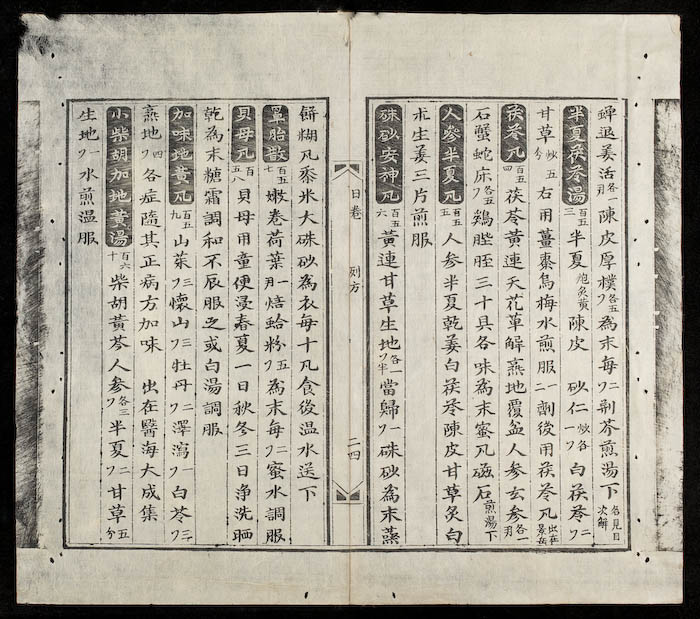 蟬退姜活各一刃陳皮厚樸各五ワ為末每ワ二荆芥煎湯下名見目次解
半夏茯苓湯百五三半夏炮炙黄陳皮砂仁炒各一ワ白茯苓ワ二
甘草炒五分右用薑棗烏梅水煎服二劑後用茯苓凡出在景岳
茯苓凡百五四茯苓黄連天花草解熹地覆盆人參玄參各一刃
石蟹蛇床各五ワ鷄胵三十具各味為末蜜凡磁石煎湯下
人參半夏凡百五五人參半夏乾姜白茯苓陳皮甘草炙白
朮生姜三片煎服
硃砂安神凡百五六黄連甘草生地各一ワ半當歸ワ一硃砂為末蒸
日卷 列方 二四
餅糊凡黍米大硃砂為衣每十凡食後温水送下
罩胎散百五七嫩卷荷葉一刃焙蛤粉ワ五為末每ワ二蜜水調服
貝母凡百五八貝母用童便浸春夏一日秋冬三日净洗晒
乾為末糖霜調和不辰服之或白湯調服
加味地黄凡百五九山茱ワ三懷山ワ三牡丹ワ二澤瀉ワ一白苓ワ三
熹地ワ四各症隨其正病方加味 出在醫海大成集
小柴胡加地黄湯百六十柴胡黄芩人參各三ワ半夏ワ二甘草五分
生地ワ一水煎温服